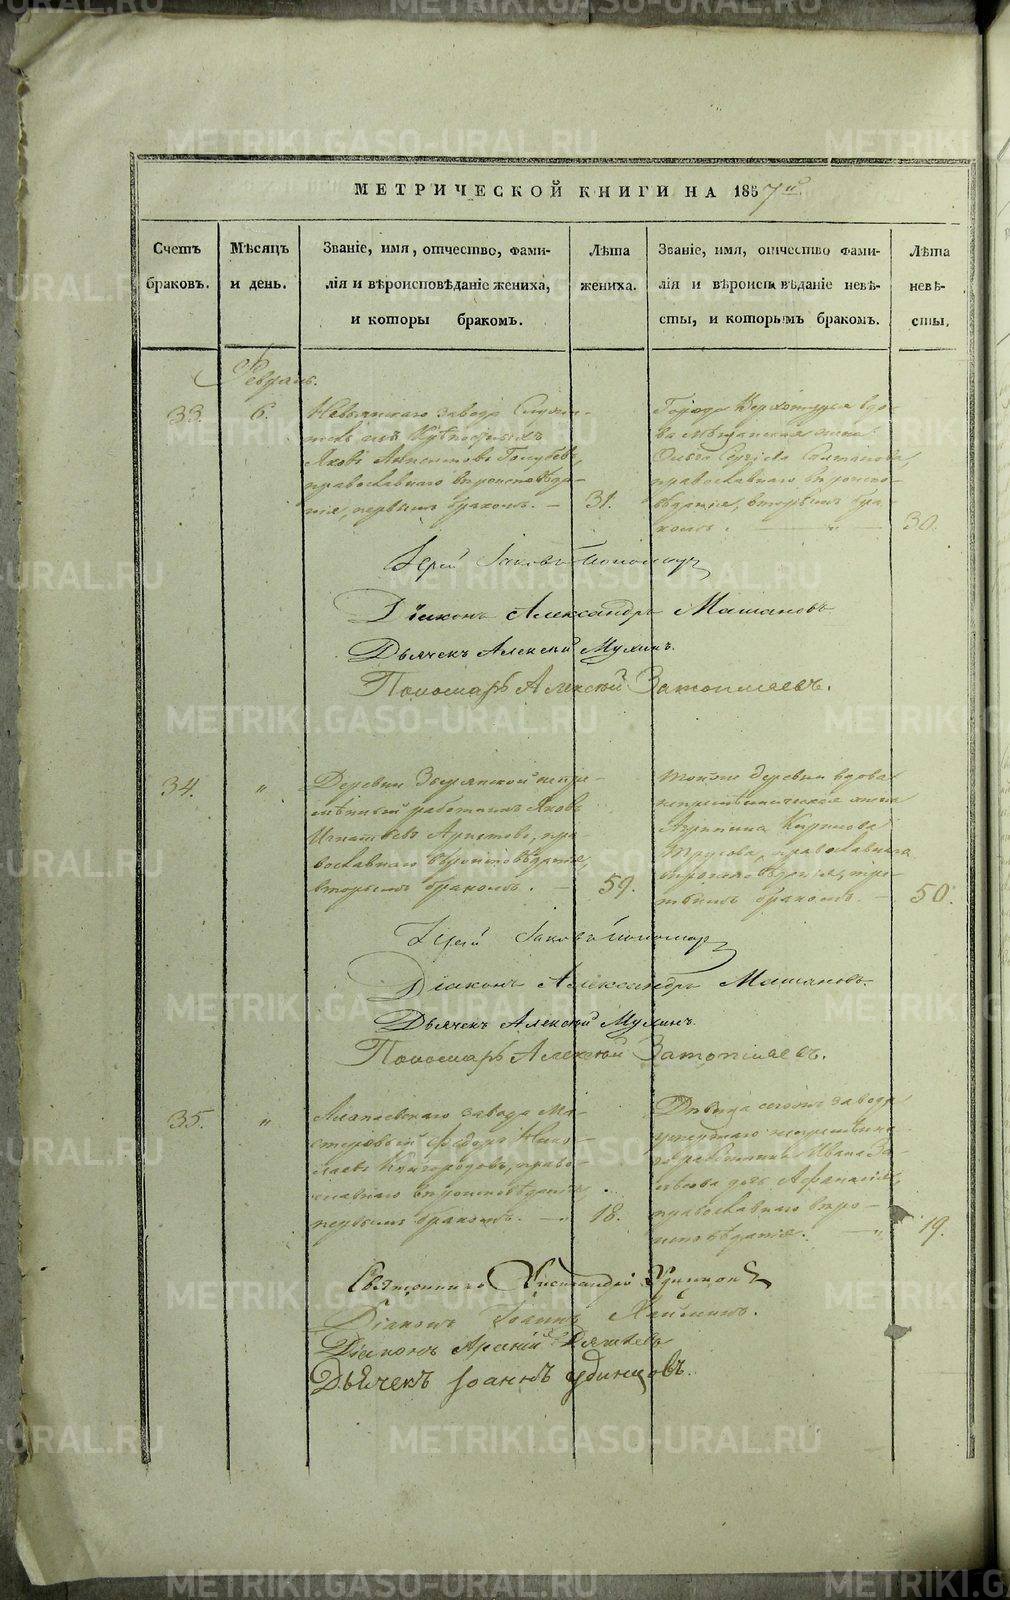 МЕТРИЧЕСКОЙ КНИГИ НА 1857й
Счетъ браковъ.
Мѣсяцъ и день.
Званіе, имя, отчество, фами-
лія и вѣроисповѣданіе жениха,
и которы бракомъ.
Лѣта
жениха.
Званіе, имя, отчество фами-
лія и вѣроиспвѣданіе невѣ-
сты, и которымъ бракомъ.
Лѣта
невѣ-
сты.
Февраль.
33.
6.
Невьянскаго завода Служи-
тель изъ
Яковъ Голубевъ,
православнаго вѣроисповѣда-
нія, первымъ бракомъ.
31.
Города Верхотурья вдо-
ва Мѣщанская жена
Ольга Сергѣева
православнаго вѣроиспо-
вѣданія, вторымъ бра-
комъ.
30.
Іерей Іаковъ Пономар
Діаконъ Александръ Машановъ
Дьячекъ Алексѣй Мухинъ.
Пономарь Алексѣй Затопляевъ.
34.
"
Деревни непре-
мѣнный работникъ Яковъ
Игнатьевъ Аристовъ, пра-
вославнаго вѣроисповѣданія,
вторымъ бракомъ.
59.
Той же деревни вдова
жена
Агрипина Кирилова
православнаго
вѣроисповѣданія, тре-
тьимъ бракомъ.
50.
Іерей Іаковъ Пономар
Діаконъ Александръ Машановъ.
Дьячекъ Алексѣй Мухинъ.
Пономарь Алексѣй Затопляевъ.
35.
"
Алапаевскаго завода Ма-
стеровый Федоръ Нико-
лаевъ право-
славнаго вѣроисповѣданія,
первымъ бракомъ.
18.
Дѣвица сегожъ завода
умершаго непремѣнна-
го работника Ивана
дочь Афанасія,
православнаго вѣро-
исповѣданія.
19.
Священникъ
Діаконъ Іоаннъ
Діаконъ Арсеній
Дьячекъ Іоаннъ Удинцовъ.
METRIKI.GASO-URAL.RU